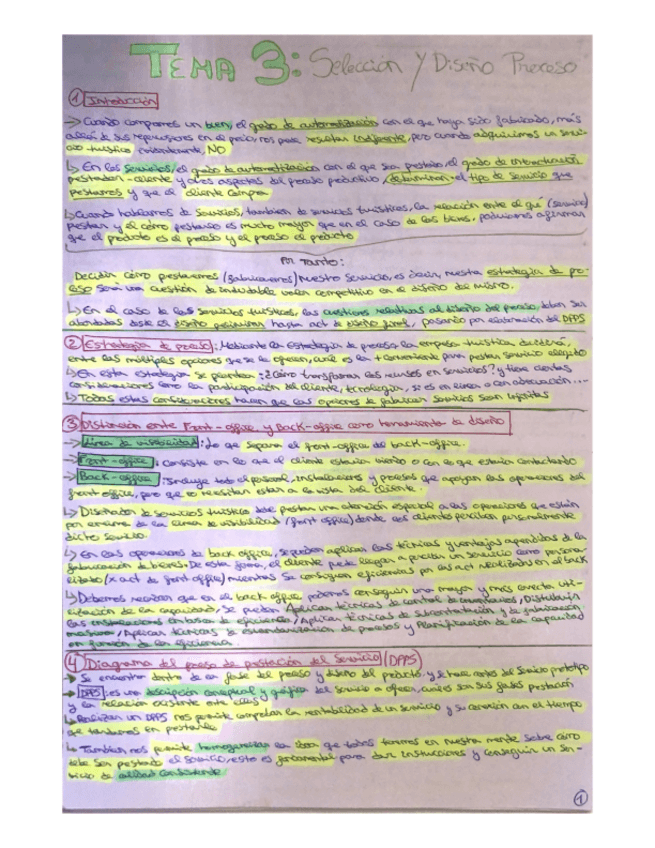 TEMA 3: Selección Y Diseño Proceso
① Introducción
→ Cuando compramos un bien, el grado de automatización con el que haya sido fabricado, más
allá de sus repercusiones en el precio, nos puede resultar indiferente, pero cuando adquirimos un servi-
cio turístico NO
↳ En los servicios, el grado de automatización con el que sea prestado, el grado de interacción
prestador-cliente y otros aspectos del proceso productivo, determinan el tipo de servicio que
prestamos y que el cliente compra
↳ Cuando hablamos de servicios, también de servicios turísticos, la relación entre el qué (servicio)
prestar y el cómo prestarlo es mucho mayor que en el caso de los bienes, podríamos afirmar
que el producto es el proceso y el proceso el producto
Por Tanto:
Decidir cómo prestaremos (fabricaremos) nuestro servicio, es decir, nuestra estrategia de pro-
ceso será una cuestión de indudable valor competitivo en el diseño del mismo.
↳ En el caso de los servicios turísticos, las cuestiones relativas al diseño del proceso deben ser
abordadas desde el diseño preliminar hasta act de diseño final, pasando por elaboración del DPPS
② Estrategia de proceso: Mediante la Estrategia de proceso la empresa turística decidirá,
entre las múltiples opciones que se le ofrecen, cual es la + conveniente para prestar servicio elegido
↳ En esta estrategia se plantea: ¿Cómo transformar los recursos en servicios? y tiene ciertas
consideraciones como la participación del cliente, tecnología,
↳ Todas estas consideraciones hacen que las opciones de fabricar servicios sean infinitas
③ Distinción entre Front-office y Back-office como herramienta de diseño
→ Línea de visibilidad: lo que separa el front-office del back-office.
→ Front-office: consiste en lo que el cliente estaría viendo o con lo que estaría contactando
→ Back-office: Incluye todo el personal, instalaciones y procesos que apoyan las operaciones del
front office, pero que no necesitan estar a la vista del cliente
↳ Diseñador de servicios turísticos debe prestar una atención especial a las operaciones que están
por encima de la línea de visibilidad (front office) donde los clientes perciben personalmente
dicho servicio
↳ En las operaciones de back office, se pueden aplicar las técnicas y ventajas aprendidas de la
fabricación de bienes. De esta forma, el cliente puede llegar a percibir un servicio como persona-
lizado (x act de front office) mientras se consiguen eficiencias por las act realizadas en el back
↳ Debemos recordar que en el back office, podemos conseguir una mayor y más correcta uti-
lización de la capacidad, se pueden Aplicar técnicas de control de inventarios, Distribuir
las instalaciones en busca de eficiencia, Aplicar técnicas de subcontratación y de fabricación
masiva, Aplicar técnicas de estandarización de procesos y Planificación de la capacidad
en función de la eficiencia.
④ Diagrama del proceso de prestación del Servicio (DPPS)
→ Se encuentra dentro de la fase del proceso y diseño del producto, y se hace antes del servicio prototipo
→ DPPS: es una descripción conceptual y gráfica del servicio a ofrecer, cuáles son sus fases prestación
y la relación existente entre ellas
↳ Realizar un DPPS nos permite comprobar la rentabilidad de un servicio y su conexión con el tiempo
que tardamos en prestarlo
↳ También nos permite homogeneizar la idea que todos tenemos en nuestra mente sobre cómo
debe ser prestado el servicio, esto es fundamental para dar instrucciones y conseguir un ser-
vicio de calidad consistente
①